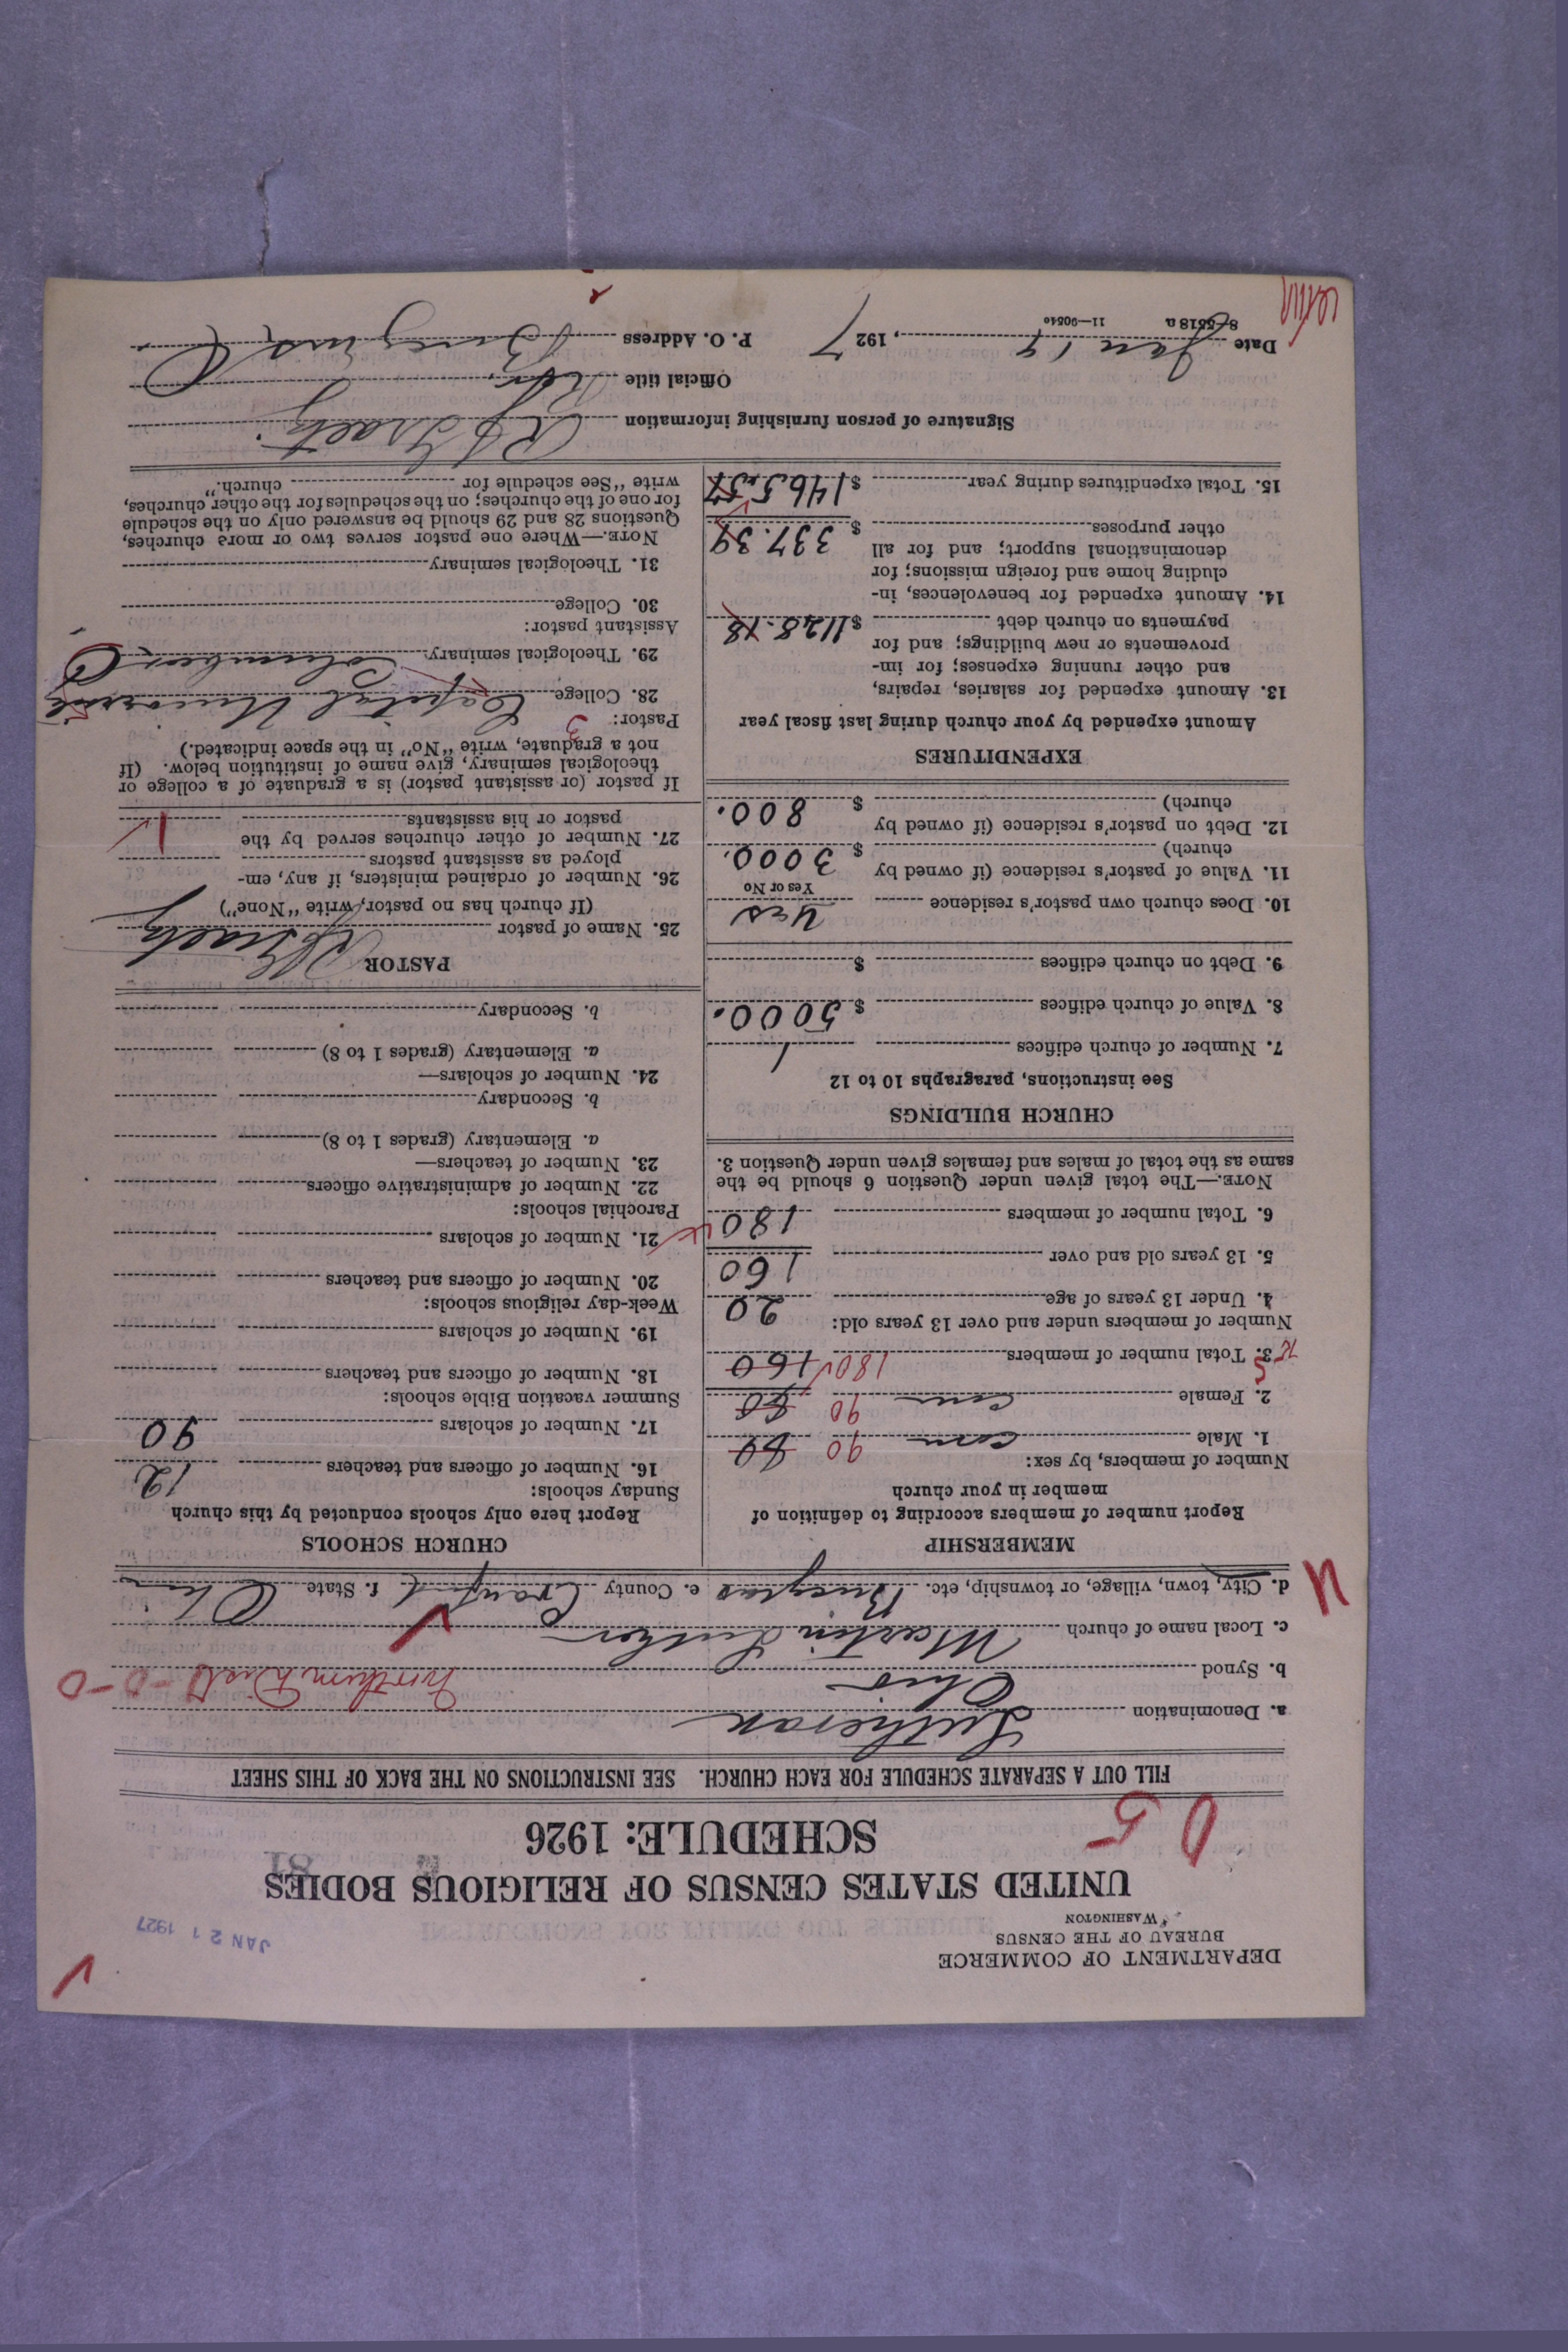 DEPARTMENT OF COMMERCE
BUREAU OF THE CENSUS
WASHINGTON
JAN 21 1927
UNITED STATES CENSUS OF RELIGIOUS BODIES
SCHEDULE: 1926
81
0 5
FILL OUT A SEPARATE SCHEDULE FOR EACH CHURCH. SEE INSTRUCTIONS ON THE BACK OF THIS SHEET
a. Denomination Lutheran
b. Synod Ohio Northern Dist 0-0-0
c. Local name of church Martin Luther
d. City, town, village, or township, etc. Bucyrus e. County Crawford f. State Ohio
MEMBERSHIP
Report number of members according to definition of
member in your church
Number of members, by sex:
1. Male 90 80
2. Female 90 80
3. Total number of members 180 160
Number of members under and over 13 years old:
4. Under 13 years of age 20
5. 13 years old and over 160
6. Total number of members 180
NOTE.—The total given under Question 6 should be the
same as the total of males and females given under Question 3.
CHURCH BUILDINGS
See instructions, paragraphs 10 to 12
7. Number of church edifices 1
8. Value of church edifices $ 5000.
9. Debt on church edifices $
10. Does church own pastor's residence Yes
Yes or No
11. Value of pastor's residence (if owned by
church) $ 3000.
12. Debt on pastor's residence (if owned by
church) $ 800.
EXPENDITURES
Amount expended by your church during last fiscal year
13. Amount expended for salaries, repairs,
and other running expenses; for im-
provements or new buildings; and for
payments on church debt $ 1128.18
14. Amount expended for benevolences, in-
cluding home and foreign missions; for
denominational support; and for all
other purposes $ 337.39
15. Total expenditures during year $ 1465.57
CHURCH SCHOOLS
Report here only schools conducted by this church
Sunday schools:
16. Number of officers and teachers 12
17. Number of scholars 90
Summer vacation Bible schools:
18. Number of officers and teachers
19. Number of scholars
Week-day religious schools:
20. Number of officers and teachers
21. Number of scholars
Parochial schools:
22. Number of administrative officers
23. Number of teachers—
a. Elementary (grades 1 to 8)
b. Secondary
24. Number of scholars—
a. Elementary (grades 1 to 8)
b. Secondary
PASTOR
25. Name of pastor
(If church has no pastor, write "None")
26. Number of ordained ministers, if any, em-
ployed as assistant pastors
27. Number of other churches served by the
pastor or his assistants 1
If pastor (or assistant pastor) is a graduate of a college or
theological seminary, give name of institution below. (If
not a graduate, write "No" in the space indicated.)
Pastor: 3
28. College Capital University
29. Theological seminary Columbus, O.
Assistant pastor:
30. College
31. Theological seminary
NOTE.—Where one pastor serves two or more churches,
Questions 28 and 29 should be answered only on the schedule
for one of the churches; on the schedules for the other churches,
write "See schedule for church."
Signature of person furnishing information
Official title
Date Jan 19, 1927 P. O. Address Bucyrus, O.
8-5518 a 11-90540